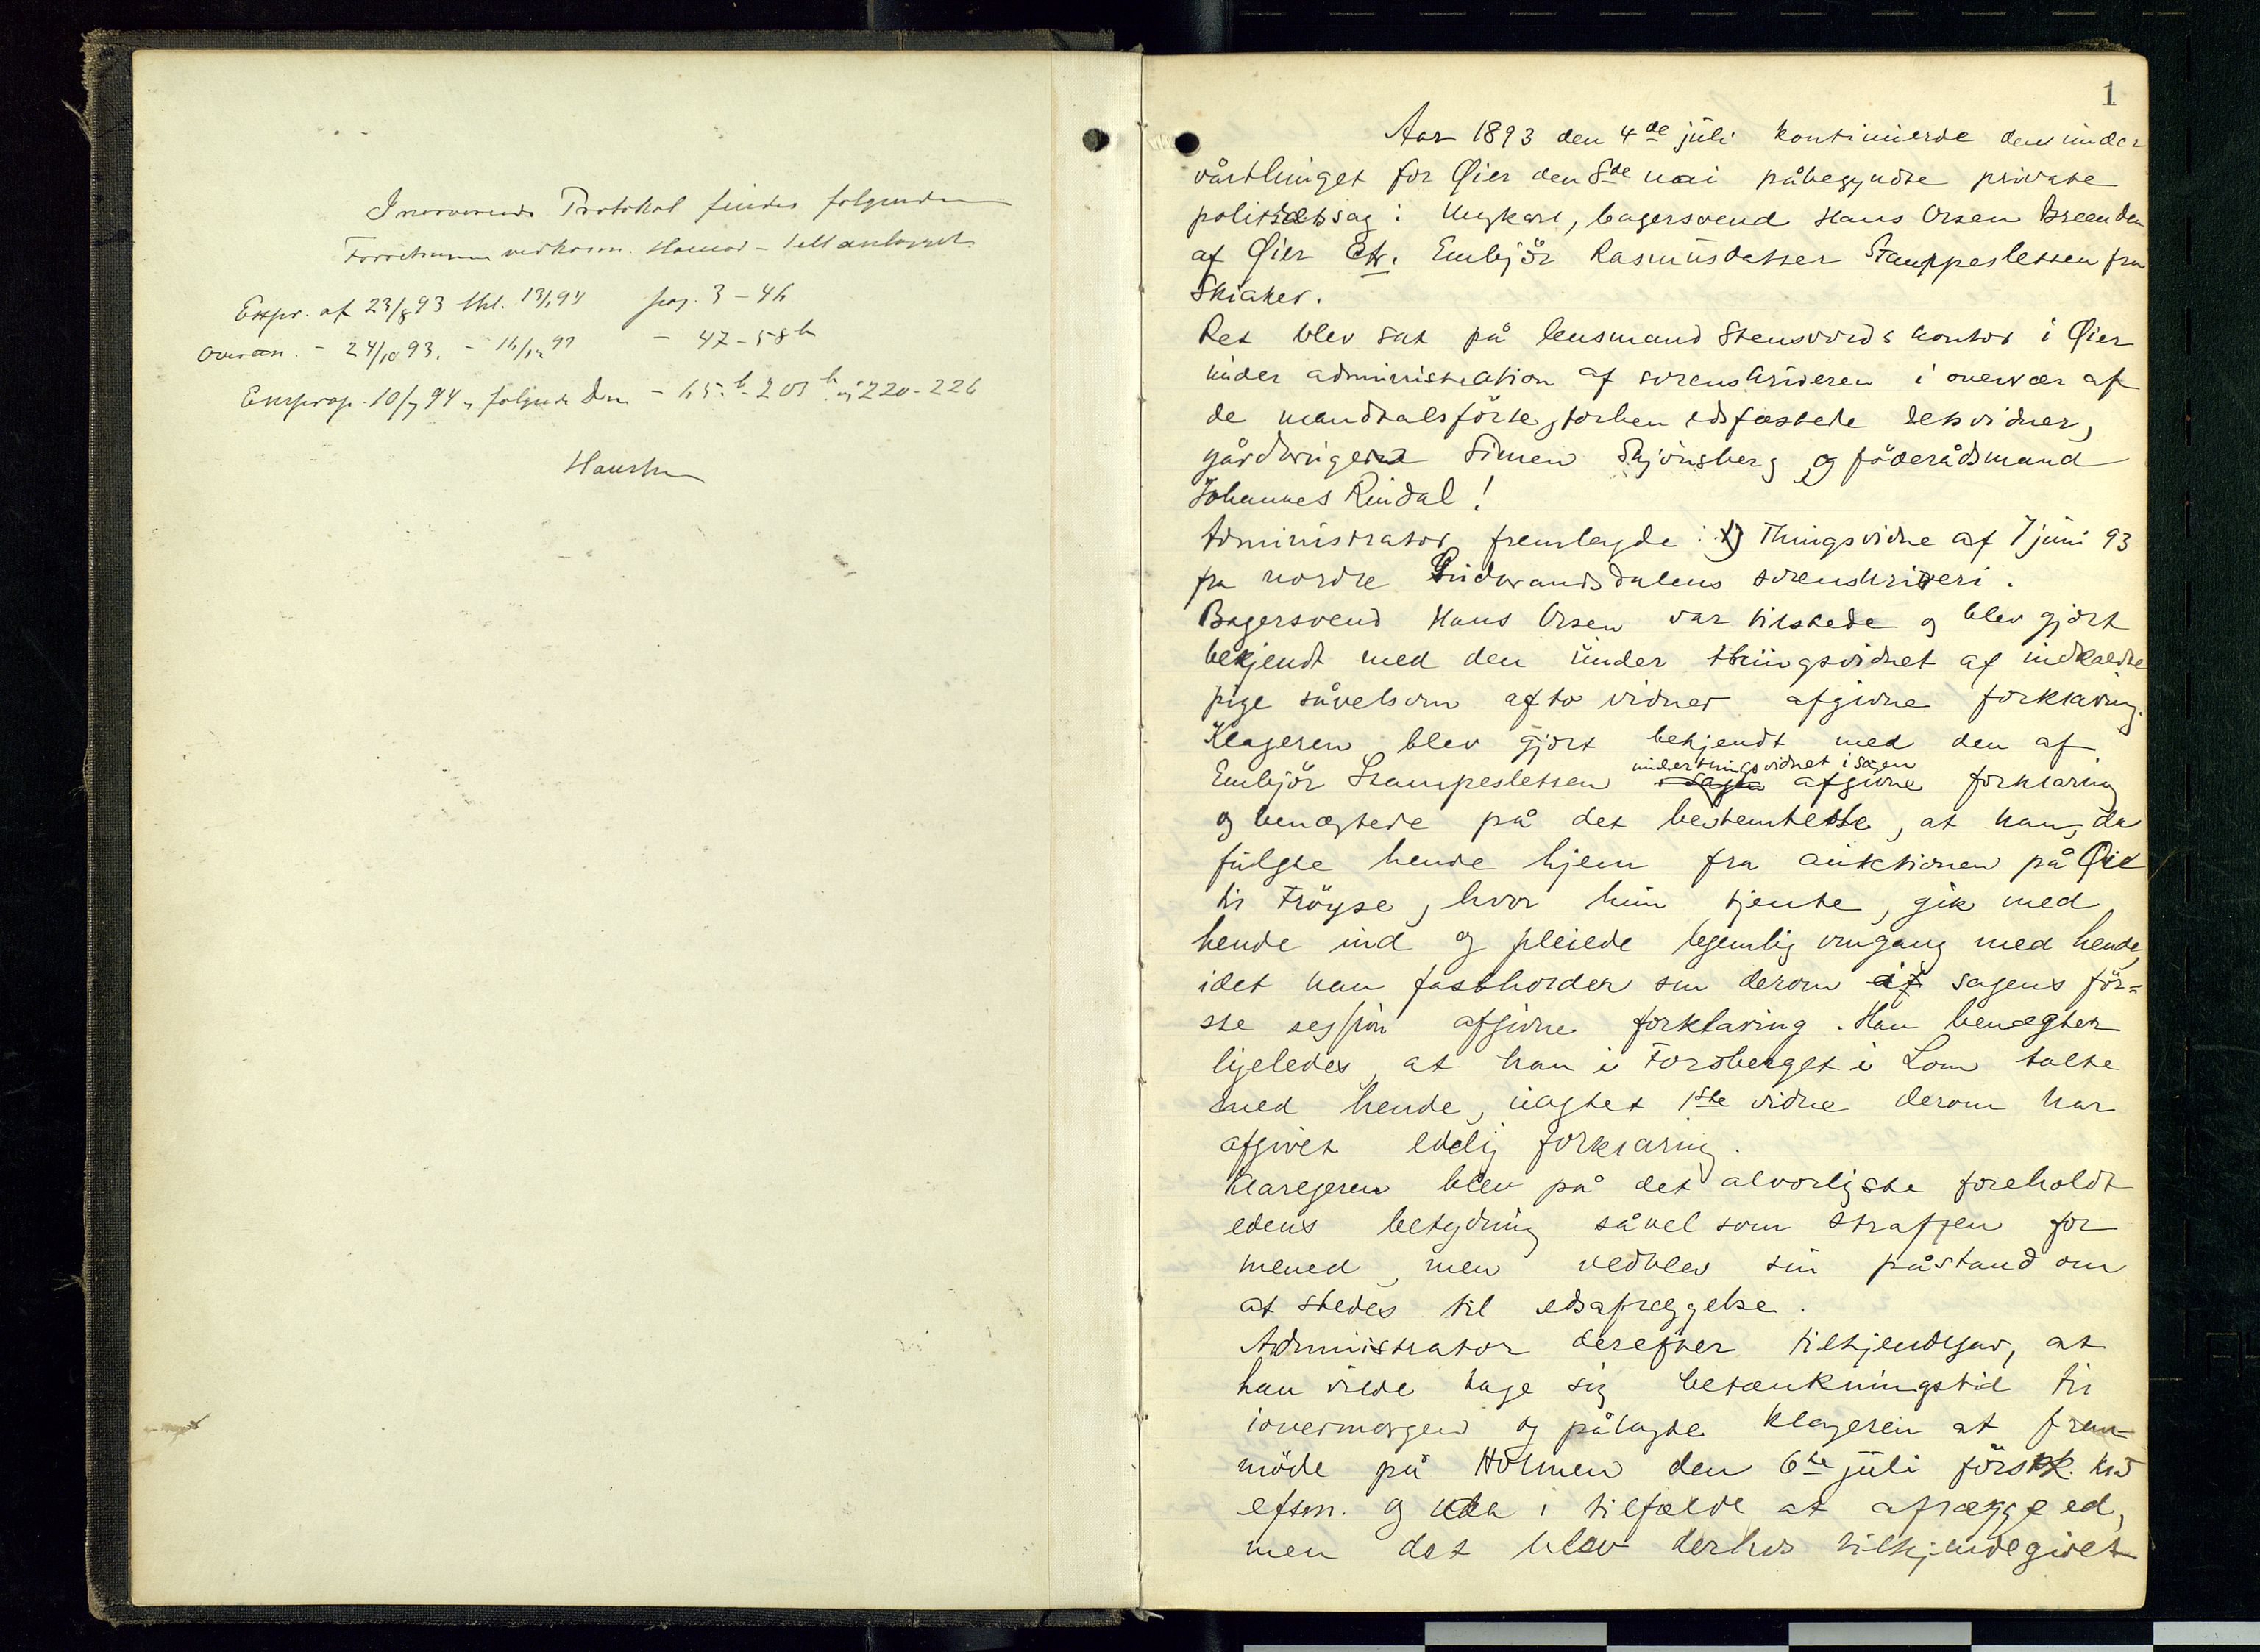 I nærværende Protokol findes følgende
Forretninger vedkom. Hamar - Sellanlægget
Expr. af 23/8 93 thl. 13/1 94 pag. 3 - 46
Overan. - 24/10 93. - 16/12 97 - 47 - 58b
Exprop. 10/7 94 og følgende Dm - 65b - 201b og 220-226
1
Aar 1893 den 4de juli kontinuerde den under
vårthinget for Øier den 8de mai påbegyndte private
politiretssag i ungkarl, bagersvend Hans Olsen Breenden
af Øier Ctr. Embjør Rasmusdatter Stamppesletten fra
Skiaker.
Ret blev sat på lensmand Stensvolds kontor i Øier
under administration af sorenskriveren i overvær af
de mandtalsførte, forhen edsfæstede retsvidner,
gårdbruger Simen Skjønsberg og föderådsmand
Johannes Rindal!
Administrator fremlagde: 1) Thingsvidne af 7 juni 93
fra nordre Gudbrandsdalens sorenskriveri.
Bagersvend Hans Olsen var tilstede og blev gjort
bekjendt med den under thingsvidnet af indkaldte
pige såvelsom af to vidner afgivne forklaring.
Klageren blev gjort bekjendt med den af
Embjör Stampesletten under thingsvidnet i sagen afgivne forklaring
og benægtede på det bestemteste, at han, da
fulgte hende hjem fra auktionen på Øie
til Fröyse, hvor hun tjente, gik med
hende ind og pleiede legemlig omgang med hende,
idet han fastholder sin derom af sagens för=
ste session afgivne forklaring. Han benægter
ligeledes, at han i Forsberget i Lom talte
med hende, uagtet 1ste vidne derom har
afgivet edelig forklaring.
Klageren blev på det alvorligste foreholdt
edens betydning såvel som straffen for
mened, men vedblev sin påstand om
at stedes til edsaflæggelse.
Administrator derefter tilkjendegav, at
han vilde tage sig betænkningstid til
iovermorgen og pålagde klageren at frem-
möde på Holmen den 6te juli förstk. kl 5
eftm. og da i tilfælde at aflægge ed,
men det blev derhos tilkjendegivet